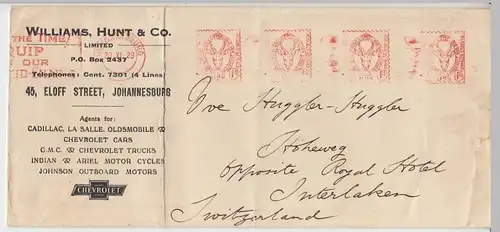 WILLIAMS, HUNT & CO.
LIMITED
P.O. Box 2437
Telephones: Cent. 7301 (4 Lines)
45, ELOFF STREET, JOHANNESBURG
Agents for:
CADILLAC, LA SALLE, OLDSMOBILE &
CHEVROLET CARS
G.M.C. & CHEVROLET TRUCKS
INDIAN & ARIEL MOTOR CYCLES
JOHNSON OUTBOARD MOTORS
CHEVROLET
THE TIME!
QUIP
OUR
29
Huggler-Huggler
Höheweg
opposite Royal Hotel
Interlaken
Switzerland